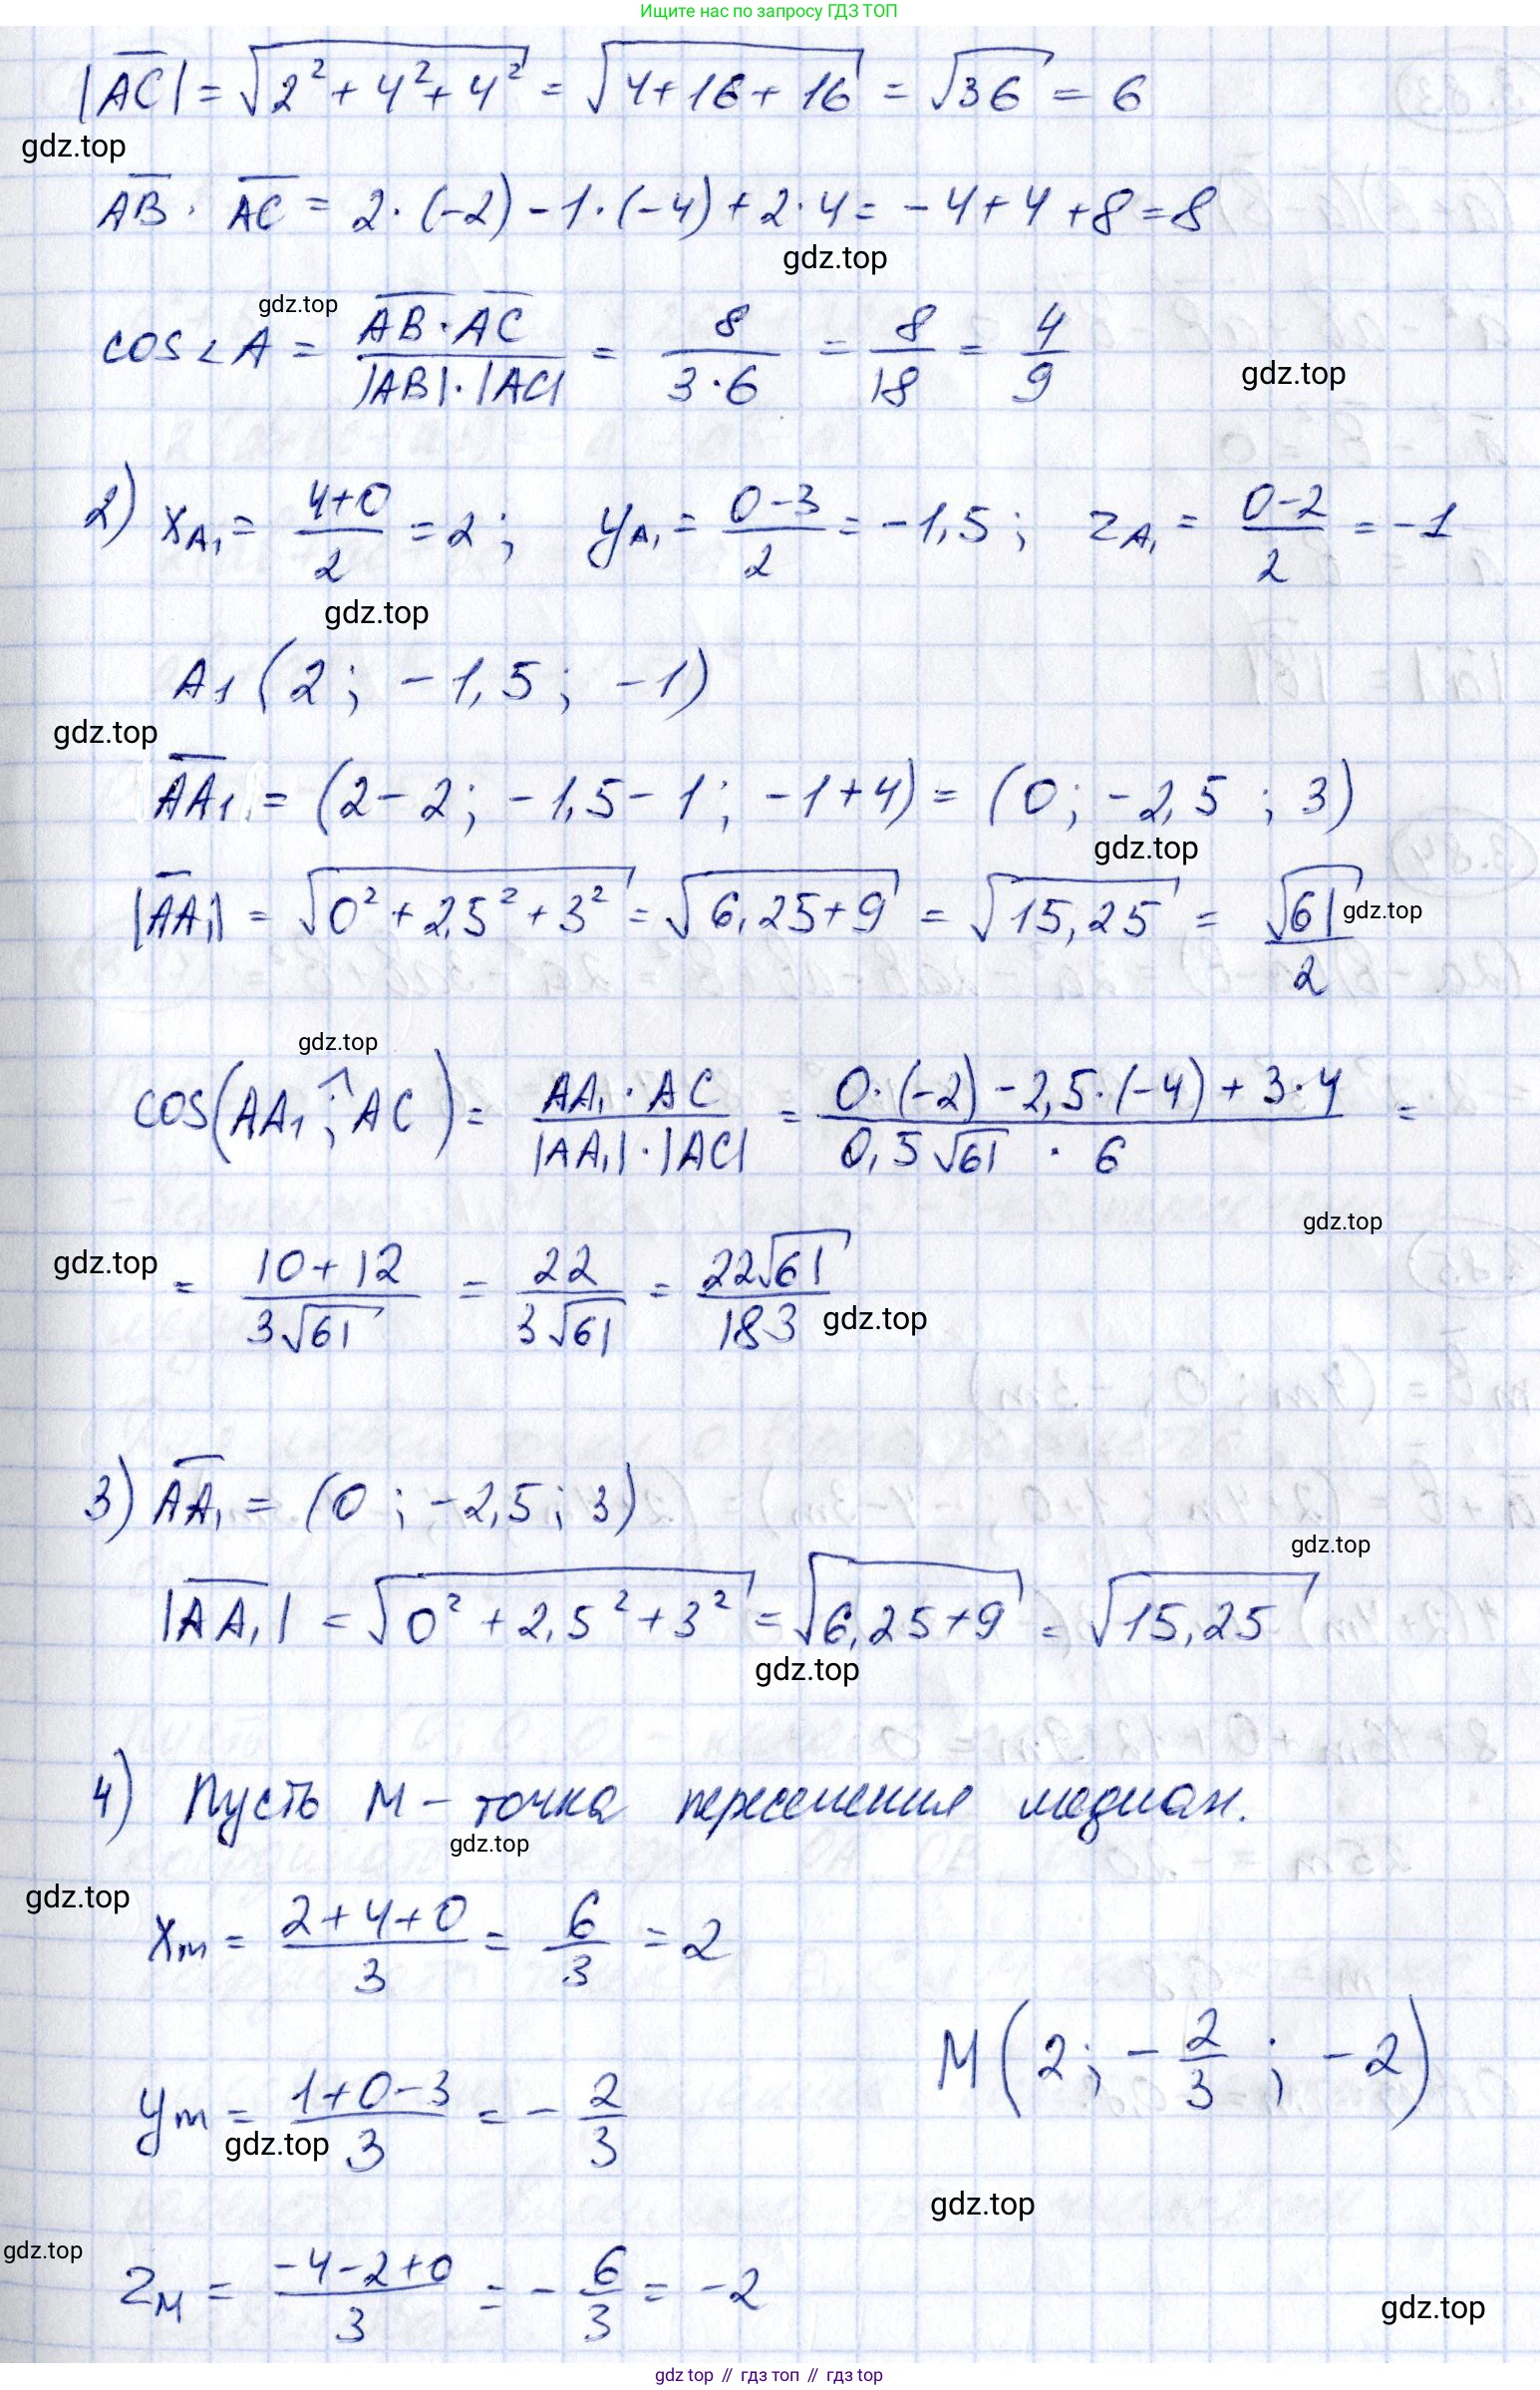 Ищите нас по запросу ГДЗ ТОП
|AC| = √(2² + 4² + 4²) = √(4+16+16) = √36 = 6
gdz.top
AB · AC = 2·(-2) - 1·(-4) + 2·4 = -4 + 4 + 8 = 8
gdz.top
gdz.top
cos∠A = (AB·AC)/(|AB|·|AC|) = 8/(3·6) = 8/18 = 4/9
gdz.top
2) xA₁ = (4+0)/2 = 2; yA₁ = (0-3)/2 = -1,5; zA₁ = (0-2)/2 = -1
gdz.top
A₁ (2; -1,5; -1)
gdz.top
AA₁ = (2-2; -1,5-1; -1+4) = (0; -2,5; 3)
gdz.top
|AA₁| = √(0² + 2,5² + 3²) = √(6,25+9) = √15,25 = √61/2
gdz.top
gdz.top
cos(AA₁ ^; AC) = (AA₁·AC)/(|AA₁|·|AC|) = (0·(-2) - 2,5·(-4) + 3·4)/(0,5√61 · 6) =
gdz.top
gdz.top
= (10+12)/(3√61) = 22/(3√61) = 22√61/183
gdz.top
3) AA₁ = (0; -2,5; 3)
gdz.top
|AA₁| = √(0² + 2,5² + 3²) = √(6,25+9) = √15,25
gdz.top
4) Пусть M – точка пересечения медиан.
gdz.top
gdz.top
xm = (2+4+0)/3 = 6/3 = 2
M(2; -2/3; -2)
ym = (1+0-3)/3 = -2/3
gdz.top
gdz.top
gdz.top
zM = (-4-2+0)/3 = -6/3 = -2
gdz.top
gdz top // гдз топ // gdz top